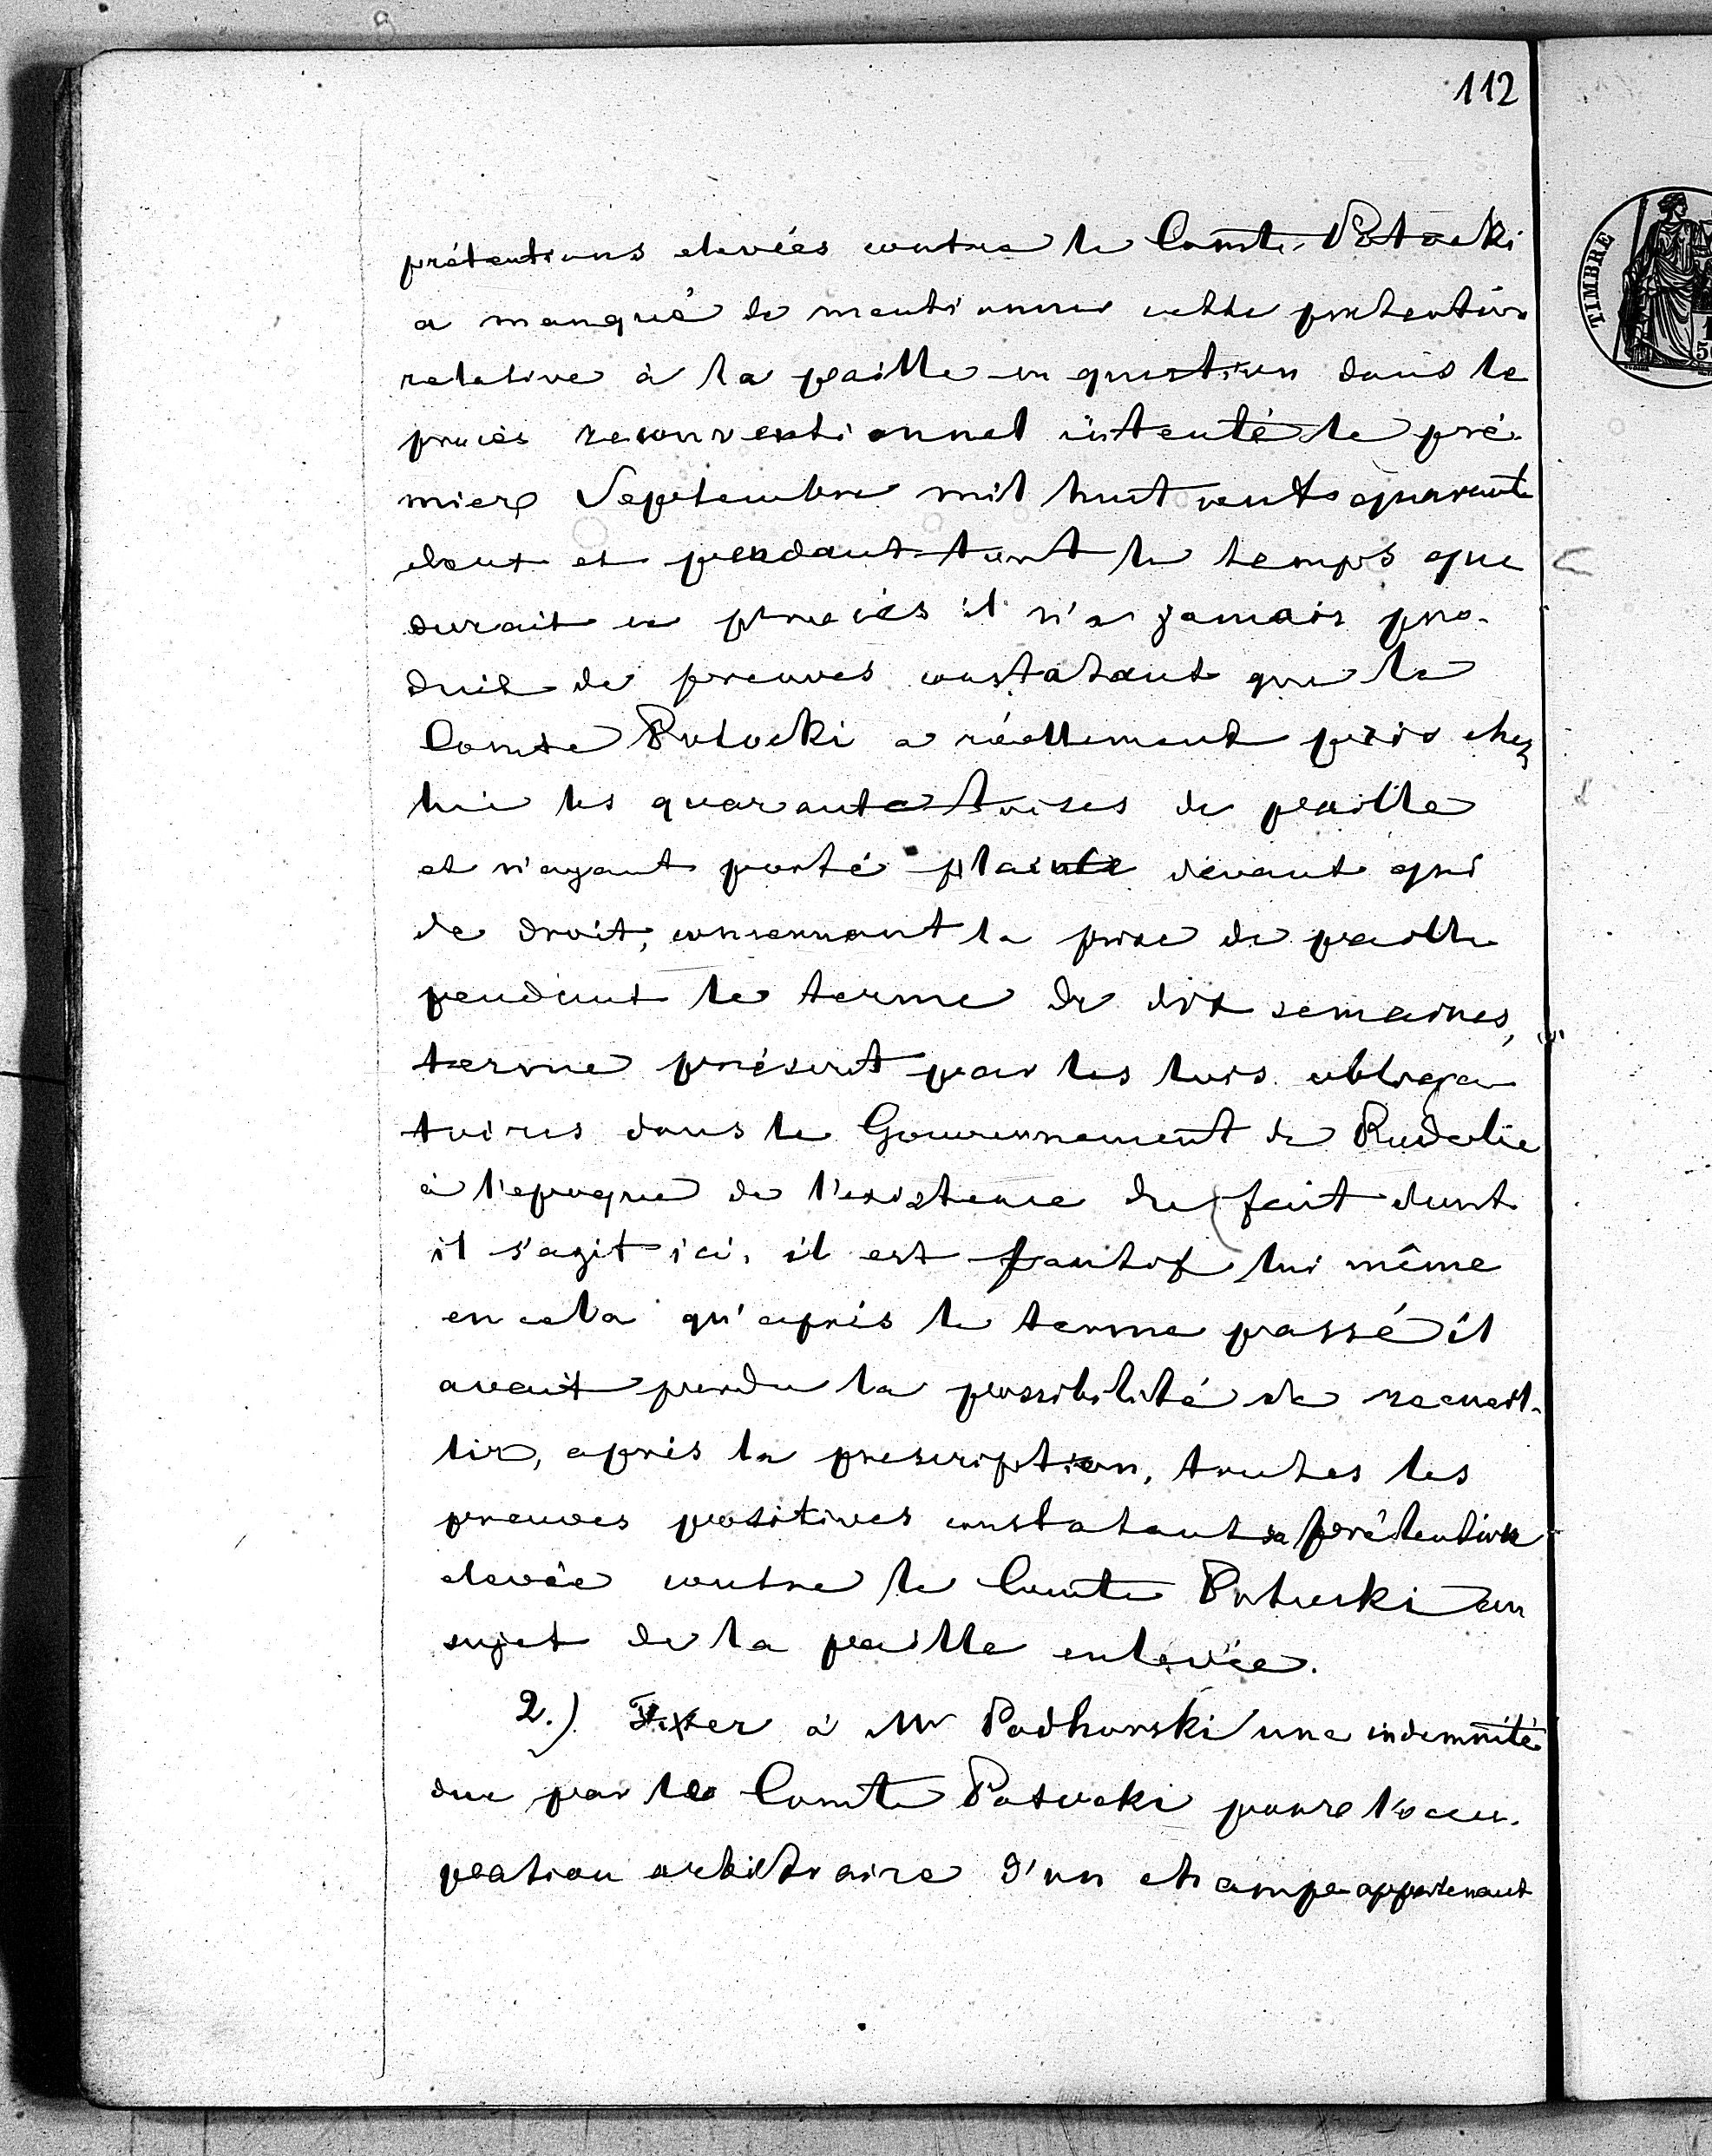 112
prétentions elevées contre le Comte Potocki
a manqué de mentionner cette prétention
relative à la paille en question dans le
procès reconventionnel intenté le pré-
mier Septembre mil huit cents quarante
deux et pendant tout le temps que
durait ce procès il n'a jamais pro-
duit de preuves constatant que le
Comte Potocki a réellement pris chez
lui les quarante toises de paille
et n'ayant porté plainte devant qui
de droit, concernant la prise de paille
pendant le terme de dix semaines,
terme préscrit par les lois obliga-
toires dans le Gouvernement de Podolie
à l'epoque de l'existence du fait dont
il s'agit ici, il est fautif lui même
en cela qu'après le terme passé il
avait perdu la possibilité de recueil-
lir, après la prescription, toutes les
preuves positives constatant sa prétention
elevée contre le Comte Potocki au
sujet de la paille enlevée.
2.) Fixer à Mr Podhorski une indemnité
due par le Comte Potocki pour l'occu-
pation arbitraire d'un champ appartenant
TIMBRE